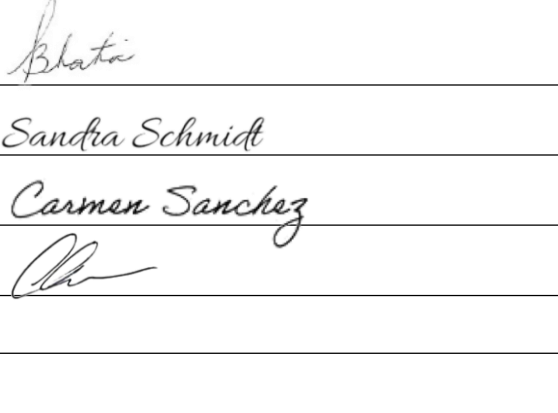 Bhatia
Sandra Schmidt
Carmen Sanchez